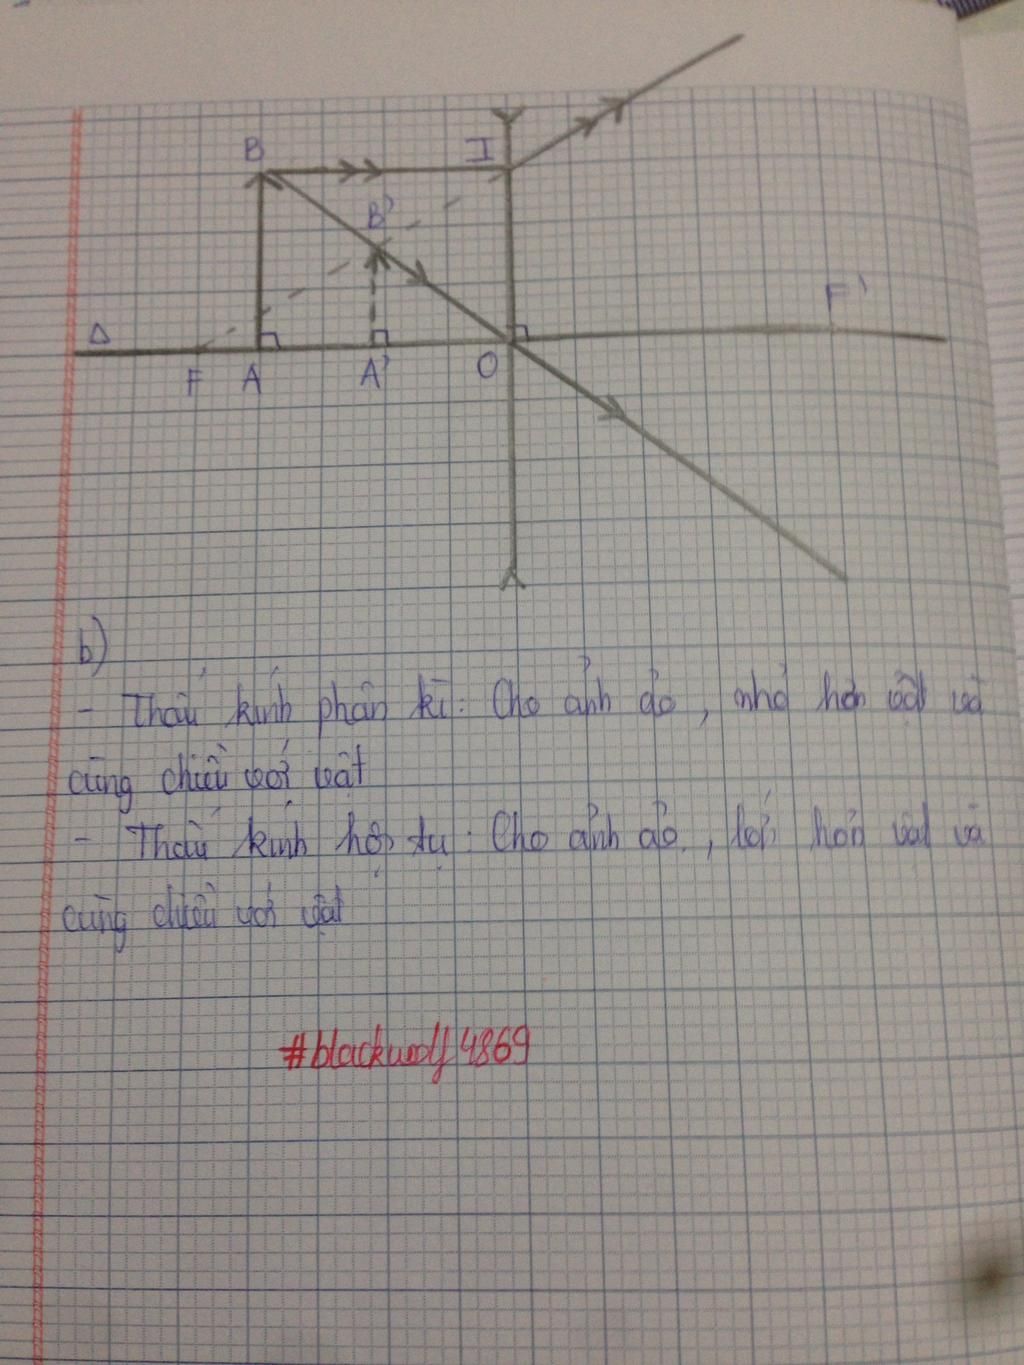 B I
B'
Δ F'
F A A' O
b)
- Thấu kính phân kì: Cho ảnh ảo, nhỏ hơn vật và
cùng chiều với vật
- Thấu kính hội tụ: Cho ảnh ảo, lớn hơn vật và
cùng chiều với vật
#blackwolf4869